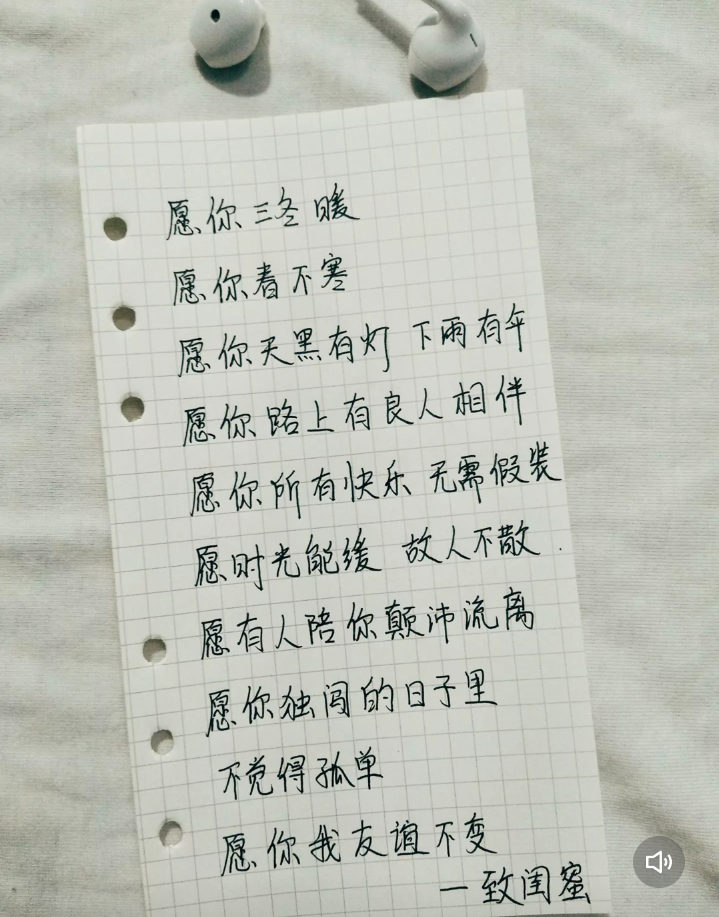 愿你三冬暖
愿你春不寒
愿你天黑有灯 下雨有伞
愿你路上有良人相伴
愿你所有快乐 无需假装
愿时光能缓 故人不散
愿有人陪你颠沛流离
愿你独闯的日子里
不觉得孤单
愿你我友谊不变
—致闺蜜